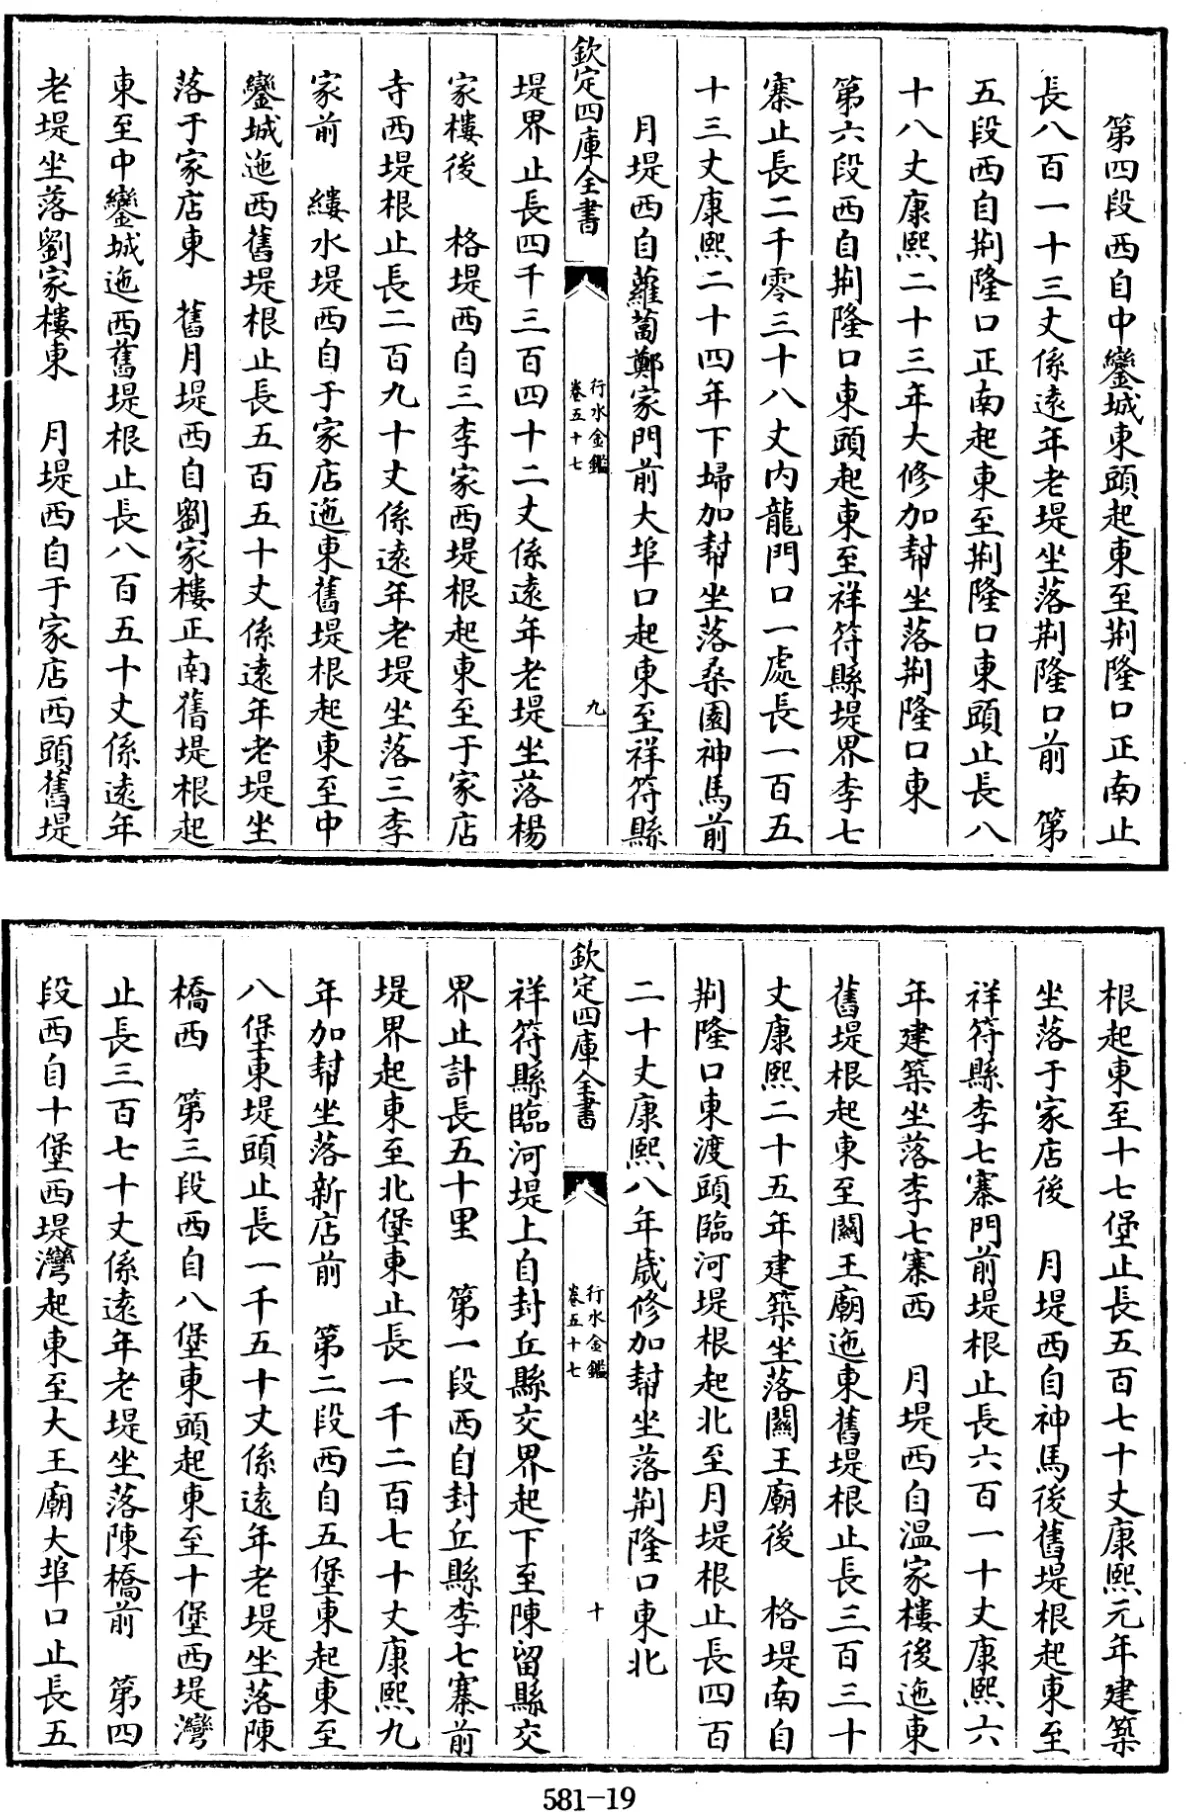 第四段西自中鑾城東頭起東至荆隆口正南止
長八百一十三丈係遠年老堤坐落荆隆口前　第
五段西自荆隆口正南起東至荆隆口東頭止長八
十八丈康熙二十三年大修加幇坐落荆隆口東
第六段西自荆隆口東頭起東至祥符縣堤界李七
寨止長二千零三十八丈内龍門口一處長一百五
十三丈康熙二十四年下埽加幇坐落桑園神馬前
月堤西自蘿蔔鄭家門前大埠口起東至祥符縣
欽定四庫全書
行水金鑑
卷五十七
九
堤界止長四千三百四十二丈係遠年老堤坐落楊
家樓後　格堤西自三李家西堤根起東至于家店
寺西堤根止長二百九十丈係遠年老堤坐落三李
家前　縷水堤西自于家店迤東舊堤根起東至中
鑾城迤西舊堤根止長五百五十丈係遠年老堤坐
落于家店東　舊月堤西自劉家樓正南舊堤根起
東至中鑾城迤西舊堤根止長八百五十丈係遠年
老堤坐落劉家樓東　月堤西自于家店西頭舊堤
根起東至十七堡止長五百七十丈康熙元年建築
坐落于家店後　月堤西自神馬後舊堤根起東至
祥符縣李七寨門前堤根止長六百一十丈康熙六
年建築坐落李七寨西　月堤西自溫家樓後迤東
舊堤根起東至關王廟迤東舊堤根止長三百三十
丈康熙二十五年建築坐落關王廟後　格堤南自
荆隆口東渡頭臨河堤根起北至月堤根止長四百
二十丈康熙八年歲修加幇坐落荆隆口東北
欽定四庫全書
行水金鑑
卷五十七
十
祥符縣臨河堤上自封丘縣交界起下至陳留縣交
界止計長五十里　第一段西自封丘縣李七寨前
堤界起東至北堡東止長一千二百七十丈康熙九
年加幇坐落新店前　第二段西自五堡東起東至
八堡東堤頭止長一千五十丈係遠年老堤坐落陳
橋西　第三段西自八堡東頭起東至十堡西堤灣
止長三百七十丈係遠年老堤坐落陳橋前　第四
段西自十堡西堤灣起東至大王廟大埠口止長五
581-19